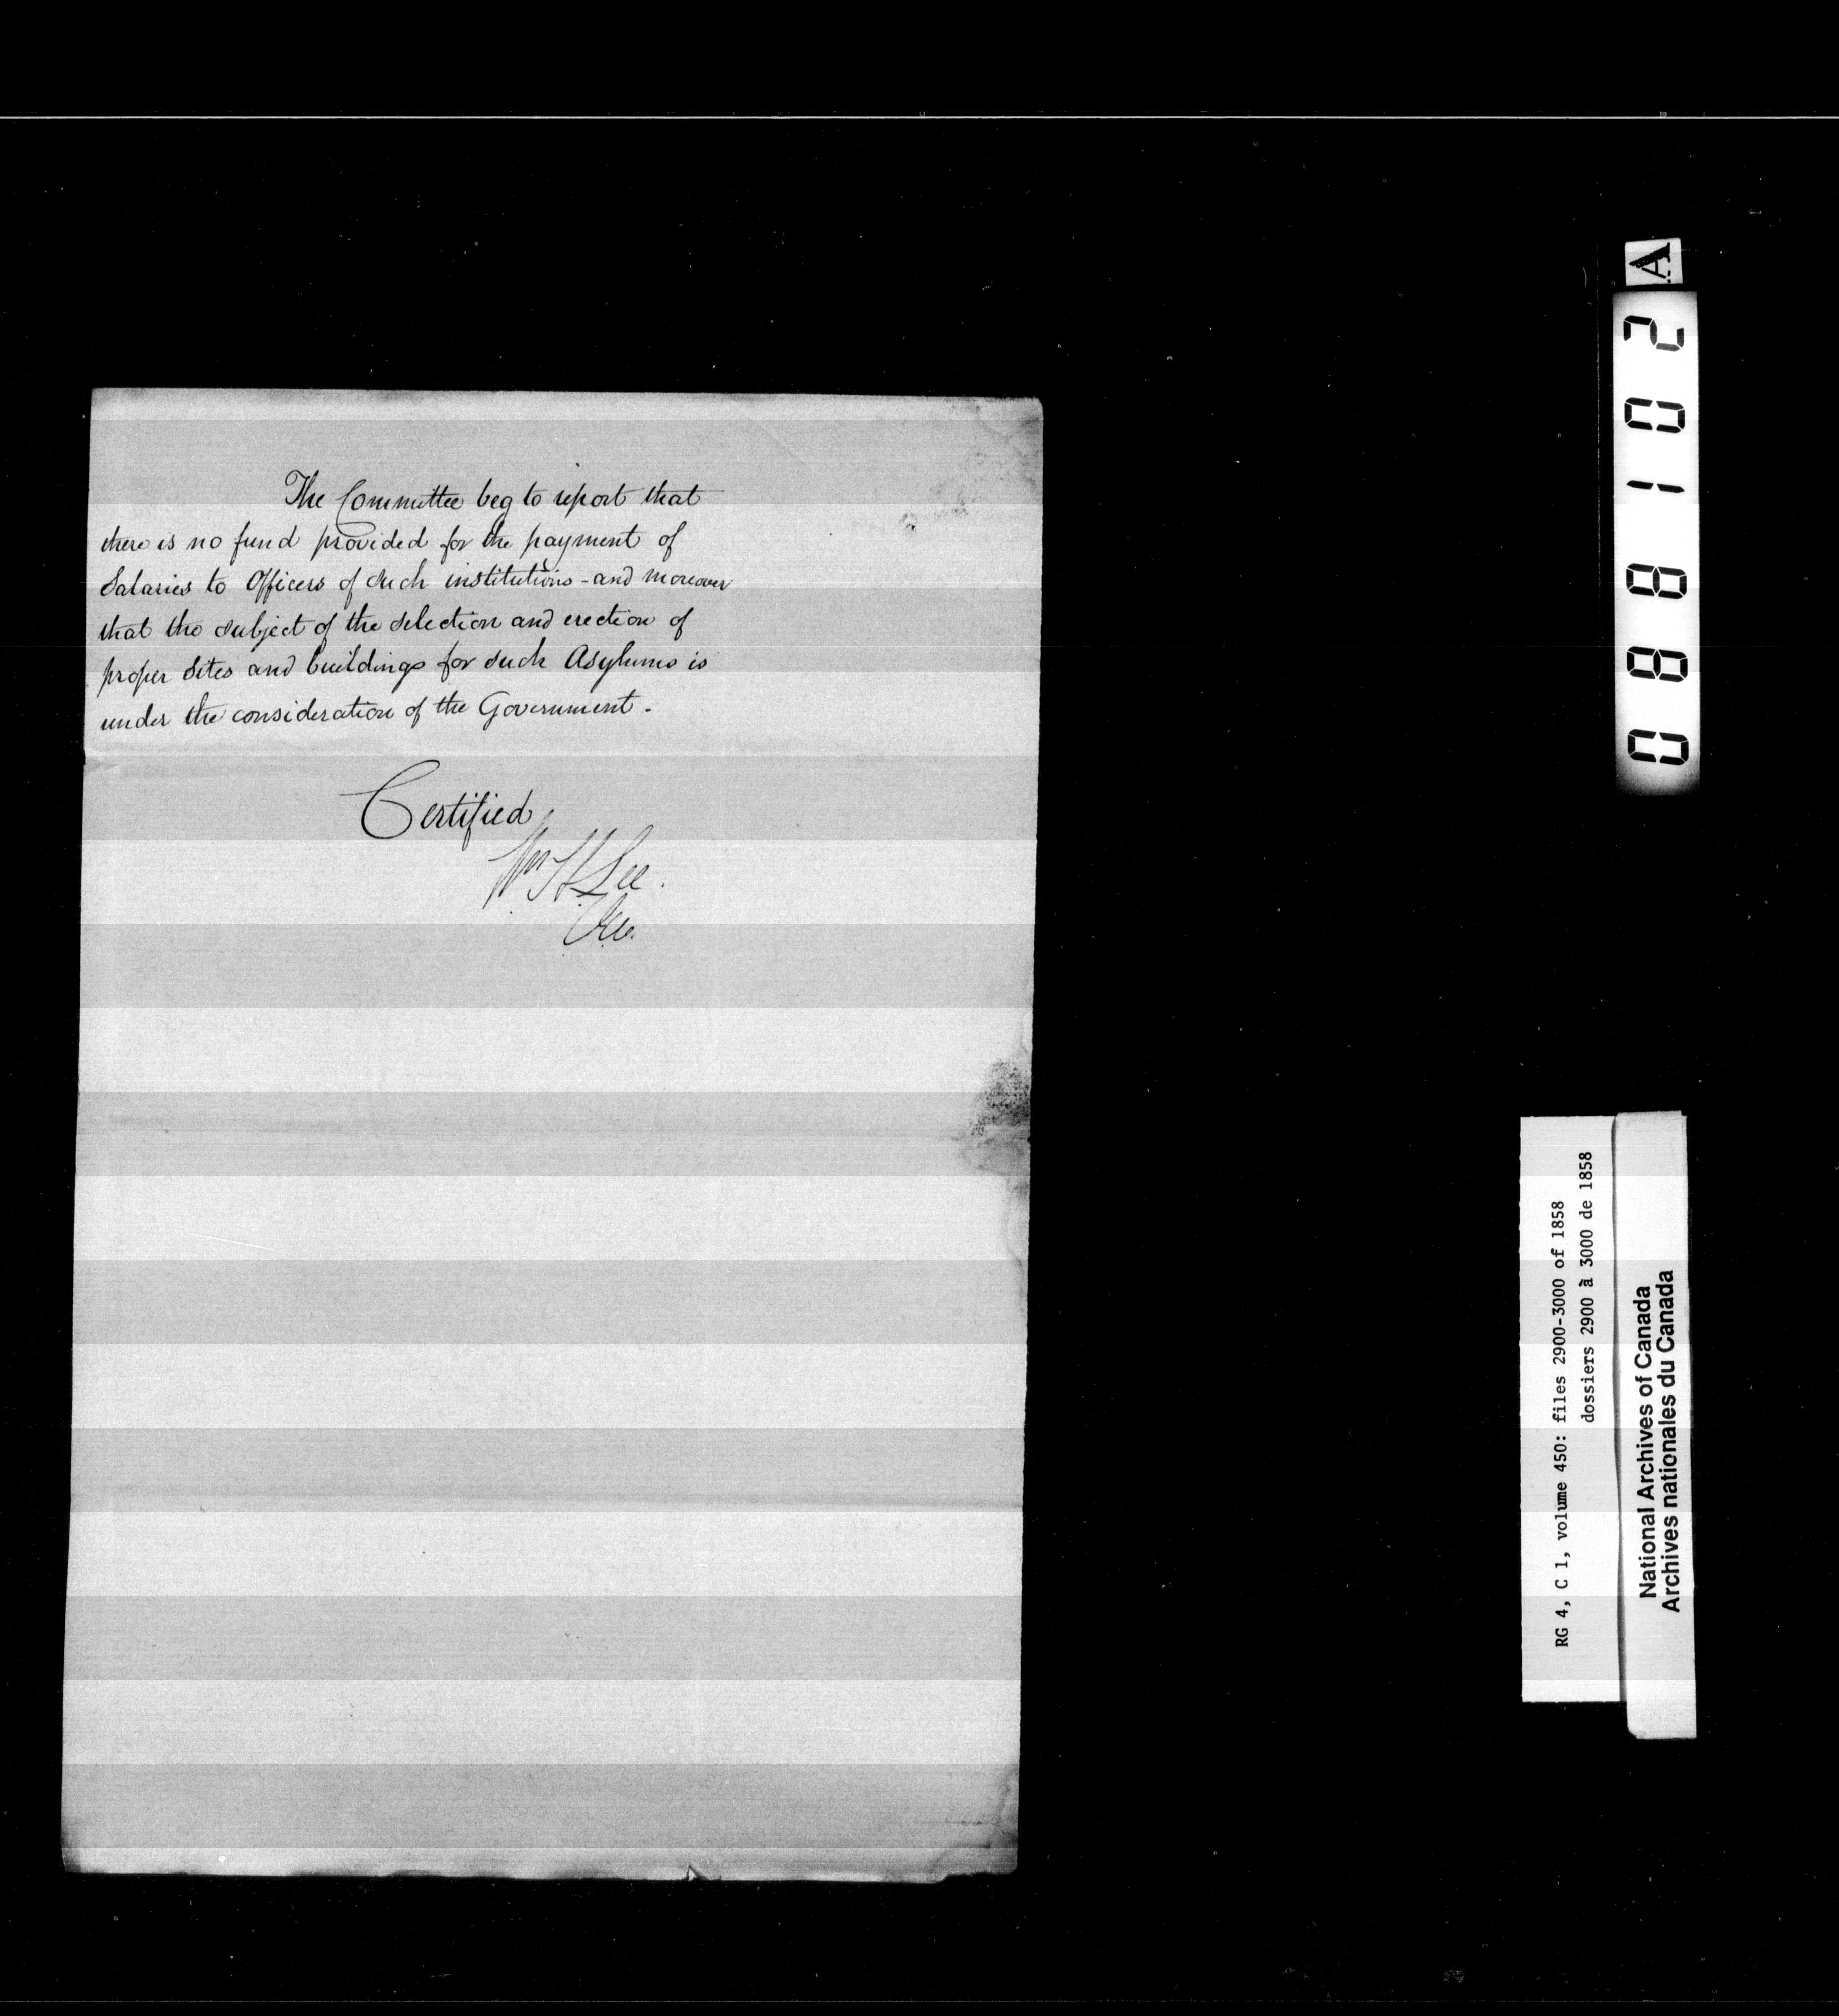 The Committee beg to report that
there is no fund provided for the payment of
Salaries to Officers of such institutions - and moreover
that the subject of the selection and erection of
proper Sites and buildings for such Asylums is
under the consideration of the Government.
Certified
Wm H Lee.
A
0 8 8 1 0 2
RG 4, C 1, volume 450: files 2900-3000 of 1858
dossiers 2900 à 3000 de 1858
National Archives of Canada
Archives nationales du Canada